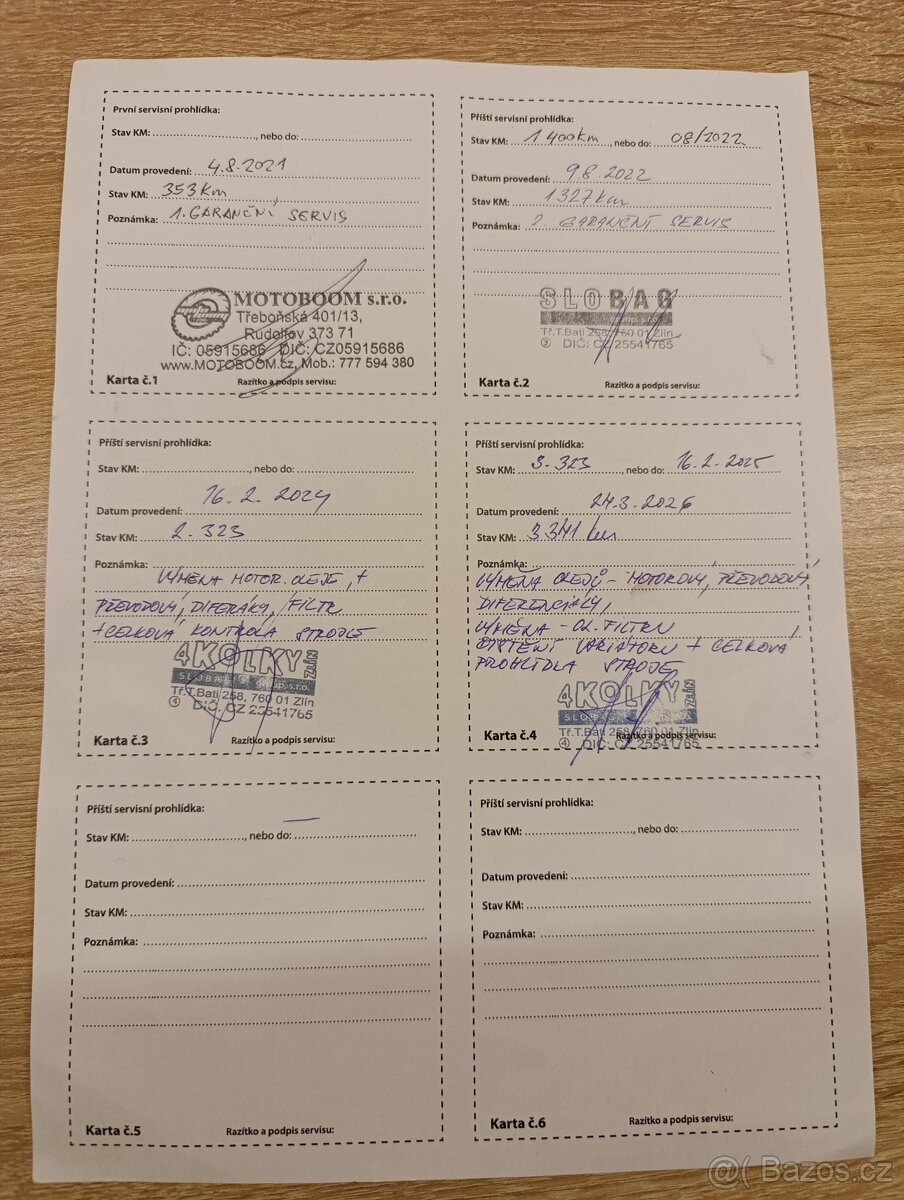 První servisní prohlídka:
Stav KM: , nebo do:
Datum provedení: 4.8.2021
Stav KM: 353 km
Poznámka: 1. GARANČNÍ SERVIS
MOTOBOOM s.r.o.
Třeboňská 401/13,
Rudolfov 373 71
IČ: 05915686 DIČ: CZ05915686
www.MOTOBOOM.cz, Mob.: 777 594 380
Karta č.1 Razítko a podpis servisu:
Příští servisní prohlídka:
Stav KM: 1400km, nebo do: 08/2022
Datum provedení: 9.8.2022
Stav KM: 1327km
Poznámka: 2. GARANČNÍ SERVIS
SLOBAG
Tř.T.Bati 258, 760 01 Zlín
③ DIČ: CZ 25541765
Karta č.2 Razítko a podpis servisu:
Příští servisní prohlídka:
Stav KM: , nebo do:
Datum provedení: 16.2.2024
Stav KM: 2.323
Poznámka:
VÝMĚNA MOTOR. OLEJE, +
PŘEVODOVÝ, DIFERÁKY, FILTR
+ CELKOVÁ KONTROLA STROJE
4KOLKY ZLÍN
SLOBAG group, s.r.o.
Tř.T.Bati 258, 760 01 Zlín
④ DIČ: CZ 25541765
Karta č.3 Razítko a podpis servisu:
Příští servisní prohlídka:
Stav KM: 3.323, nebo do: 16.2.2025
Datum provedení: 24.3.2026
Stav KM: 3341 km
Poznámka:
VÝMĚNA OLEJŮ - MOTOROVÝ, PŘEVODOVÝ,
DIFERENCIÁLY,
VÝMĚNA - OL. FILTRU
ČIŠTĚNÍ VARIÁTORU + CELKOVÁ
PROHLÍDLA STROJE
4KOLKY ZLÍN
SLOBAG
Tř.T.Bati 258, 760 01 Zlín
④ DIČ: CZ 25541765
Karta č.4 Razítko a podpis servisu:
Příští servisní prohlídka:
Stav KM: , nebo do:
Datum provedení:
Stav KM:
Poznámka:
Karta č.5 Razítko a podpis servisu:
Příští servisní prohlídka:
Stav KM: , nebo do:
Datum provedení:
Stav KM:
Poznámka:
Karta č.6 Razítko a podpis servisu:
@( Bazos.cz